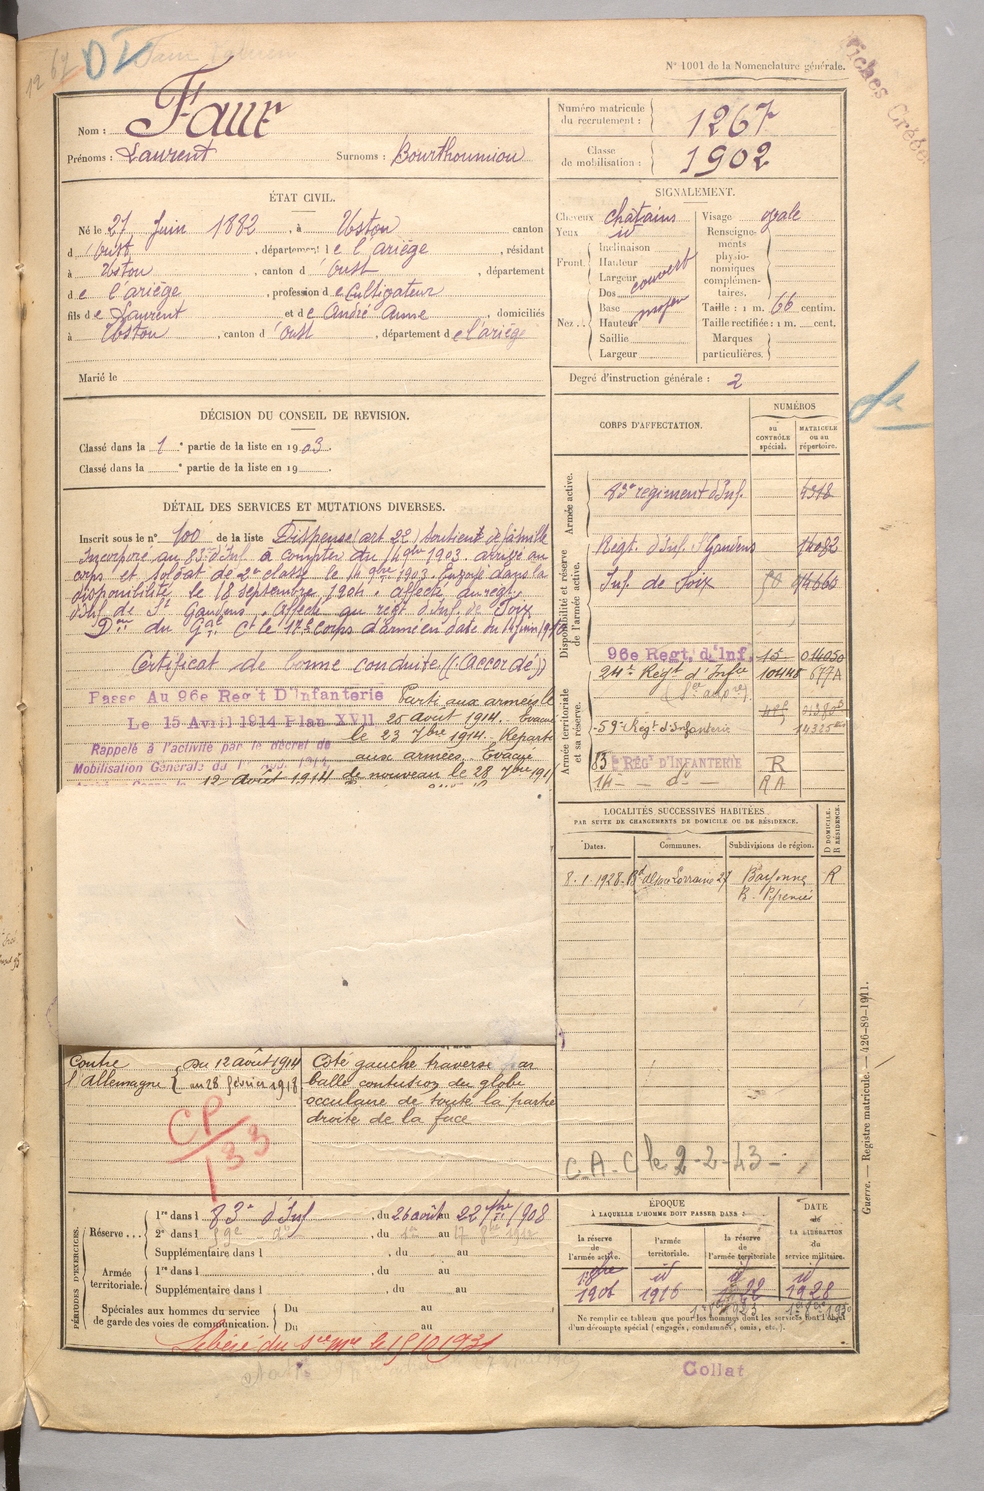 1267
N° 1001 de la Nomenclature générale.
Nom : Faur
Prénoms : Laurent Surnoms : Bourthoumiou
Numéro matricule du recrutement : 1267
Classe de mobilisation : 1902
ÉTAT CIVIL.
Né le 27 Juin 1882, à Ustou canton
d'Oust, département de l'ariège, résidant
à Ustou, canton d'Oust, département
de l'ariège, profession de Cultivateur
fils de Laurent et de André Anne, domiciliés
à Ustou, canton d'Oust, département de l'ariège
Marié le
SIGNALEMENT.
Cheveux châtains
Yeux id
Front. Inclinaison
Hauteur
Largeur couvert
Nez. Dos
Base moyen
Hauteur
Saillie
Largeur
Visage ovale
Renseignements physionomiques complémentaires.
Taille : 1 m. 66 centim.
Taille rectifiée : 1 m. cent.
Marques particulières.
Degré d'instruction générale : 2
DÉCISION DU CONSEIL DE REVISION.
Classé dans la 1e partie de la liste en 1903.
Classé dans la e partie de la liste en 19
DÉTAIL DES SERVICES ET MUTATIONS DIVERSES.
Inscrit sous le n° 100 de la liste Dispensé (art. 22) soutient de famille
Incorporé au 83e d'Inf. à compter du 14 9bre 1903. arrivé au
corps et soldat de 2e classe le 14 9bre 1903. Envoyé dans la
disponibilité le 18 septembre 1904. Affecté au regt.
d'Inf. de St Gaudens. Affecté au regt d'Inf. de Foix
Don du Gal Ct le 17e Corps d'armée en date du 14 juin 19
Certificat de bonne conduite ((Accordé))
Passé Au 96e Reg't D'Infanterie
Le 15 Avril 1914 Plan XVII
Rappelé à l'activité par le décret de
Mobilisation Générale du 1er Août 1914
12 Août 1914
Parti aux armées le
25 août 1914. Evacué
le 23 7bre 1914. Reparti
aux armées. Evacué
de nouveau le 28 7bre 191
Contre l'Allemagne { Du 12 août 1914 au 28 février 1918
Coté gauche traversé par
balle contusion du globe
occulaire de toute la partie
droite de la face
CP/133
CORPS D'AFFECTATION.
NUMÉROS
au CONTRÔLE spécial.
MATRICULE ou au répertoire.
Armée active.
83e régiment d'Inf. 4318
Disponibilité et réserve de l'armée active.
Régt. d'Inf. St Gaudens 14082
Inf. de Foix
96e Regt, d'Inf. 15 014050
Armée territoriale et sa réserve.
24e Régt d'Infie 10448 677A
59e Régt d'Infanterie
83e REGt D'INFANTERIE R
14e do RA
LOCALITÉS SUCCESSIVES HABITÉES
PAR SUITE DE CHANGEMENTS DE DOMICILE OU DE RÉSIDENCE.
Dates.
Communes.
Subdivisions de région.
D DOMICILE. R RÉSIDENCE.
8.1.1928 Bd Alsace Lorraine 27 Bayonne R
B. Pyrénées
C.A.C le 2-2-43
PÉRIODES D'EXERCICES.
Réserve... 1re dans l 83e d'Inf, du 26 août au 22 7bre 1908
2e dans l 59e do, du 1er au 17
Supplémentaire dans l, du au
Armée territoriale. 1re dans l, du au
Supplémentaire dans l, du au
Spéciales aux hommes du service de garde des voies de communication. Du au
Du au
Libéré du sce mre le 15/10 1931
ÉPOQUE
À LAQUELLE L'HOMME DOIT PASSER DANS :
la réserve de l'armée active.
l'armée territoriale.
la réserve de l'armée territoriale
DATE de LA LIBÉRATION du service militaire.
1906
id 1916
id
id 1928
Ne remplir ce tableau que pour les hommes dont les services font l'objet d'un décompte spécial (engagés, condamnés, omis, etc.).
Collat
Guerre. — Registre matricule. — 426-89-1911.